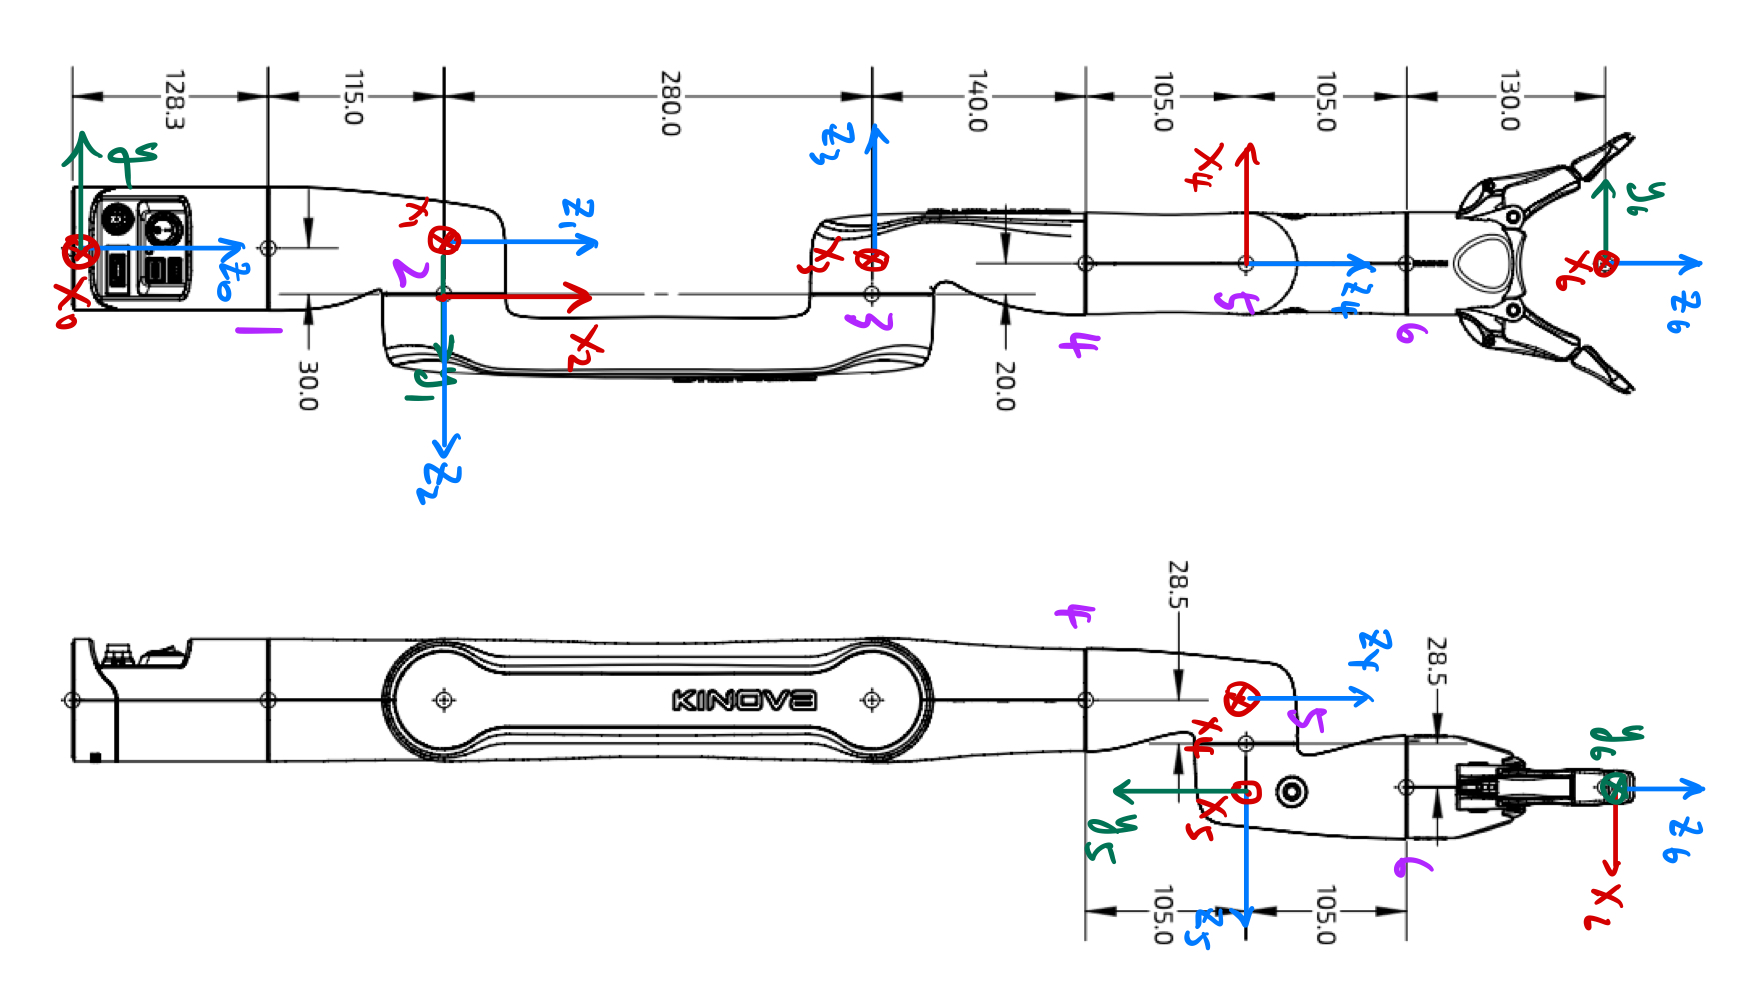 z6
y6
x6
130.0
6
105.0
z4
x4
5
105.0
4
20.0
140.0
3
z3
x3
280.0
z1
x2
x1
2
y1
z2
115.0
30.0
1
z0
128.3
y
x0
z6
y6
x6
28.5
6
z4
105.0
5
x4
x5
z5
28.5
105.0
y5
4
KINOVA